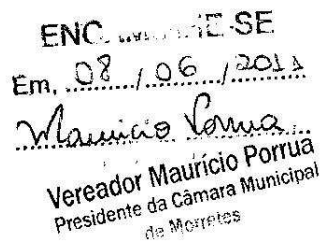 Em, 08 / 06 / 2011
Maurício Porrua
Vereador Maurício Porrua
Presidente da Câmara Municipal
de Morretes